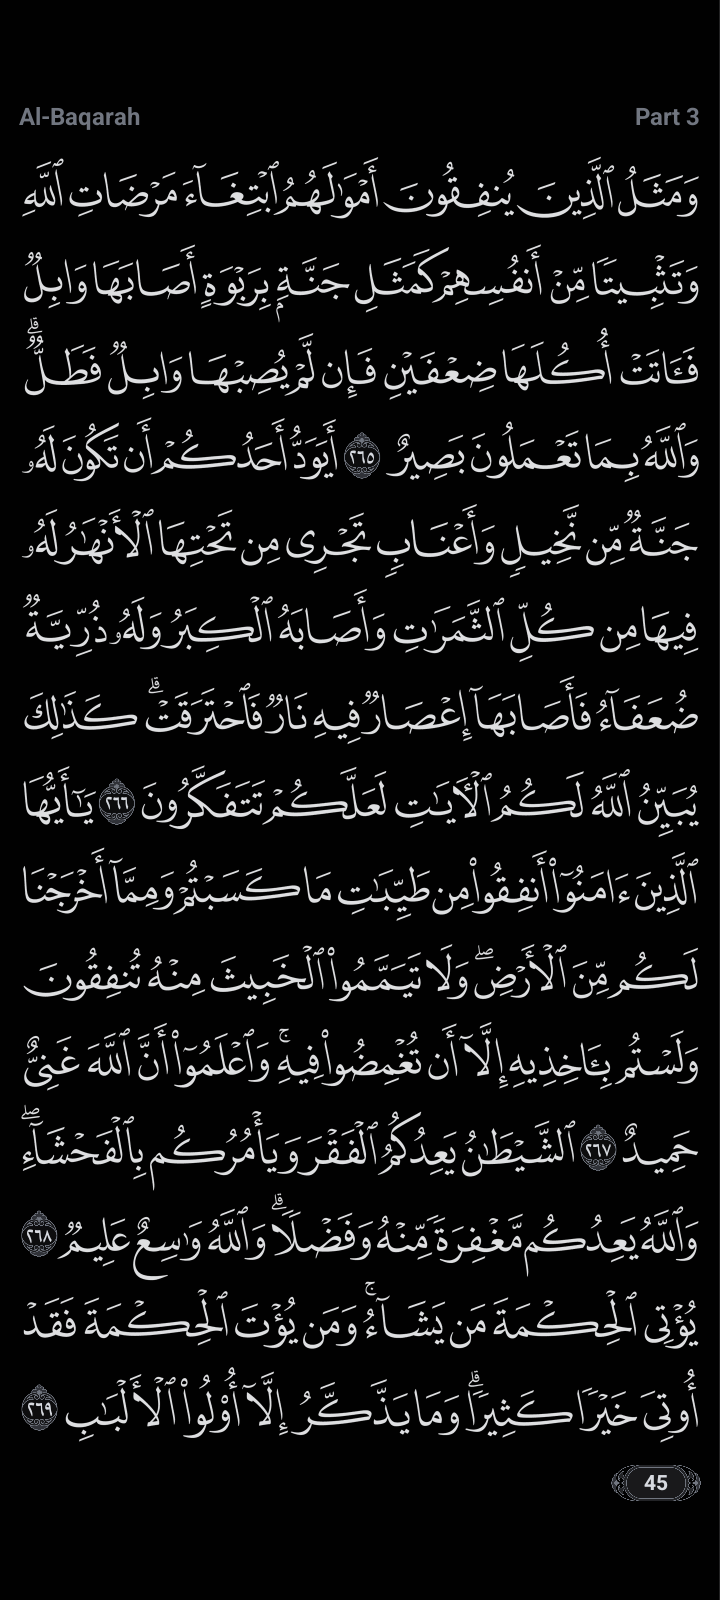 Al-Baqarah Part 3
وَمَثَلُ ٱلَّذِينَ يُنفِقُونَ أَمْوَٰلَهُمُ ٱبْتِغَآءَ مَرْضَاتِ ٱللَّهِ
وَتَثْبِيتًا مِّنْ أَنفُسِهِمْ كَمَثَلِ جَنَّةٍۭ بِرَبْوَةٍ أَصَابَهَا وَابِلٌ
فَـَٔاتَتْ أُكُلَهَا ضِعْفَيْنِ فَإِن لَّمْ يُصِبْهَا وَابِلٌ فَطَلٌّ ۗ
وَٱللَّهُ بِمَا تَعْمَلُونَ بَصِيرٌ ٢٦٥ أَيَوَدُّ أَحَدُكُمْ أَن تَكُونَ لَهُۥ
جَنَّةٌ مِّن نَّخِيلٍ وَأَعْنَابٍ تَجْرِى مِن تَحْتِهَا ٱلْأَنْهَٰرُ لَهُۥ
فِيهَا مِن كُلِّ ٱلثَّمَرَٰتِ وَأَصَابَهُ ٱلْكِبَرُ وَلَهُۥ ذُرِّيَّةٌ
ضُعَفَآءُ فَأَصَابَهَآ إِعْصَارٌ فِيهِ نَارٌ فَٱحْتَرَقَتْ ۗ كَذَٰلِكَ
يُبَيِّنُ ٱللَّهُ لَكُمُ ٱلْـَٔايَٰتِ لَعَلَّكُمْ تَتَفَكَّرُونَ ٢٦٦ يَٰٓأَيُّهَا
ٱلَّذِينَ ءَامَنُوٓا۟ أَنفِقُوا۟ مِن طَيِّبَٰتِ مَا كَسَبْتُمْ وَمِمَّآ أَخْرَجْنَا
لَكُم مِّنَ ٱلْأَرْضِ ۖ وَلَا تَيَمَّمُوا۟ ٱلْخَبِيثَ مِنْهُ تُنفِقُونَ
وَلَسْتُم بِـَٔاخِذِيهِ إِلَّآ أَن تُغْمِضُوا۟ فِيهِ ۚ وَٱعْلَمُوٓا۟ أَنَّ ٱللَّهَ غَنِىٌّ
حَمِيدٌ ٢٦٧ ٱلشَّيْطَٰنُ يَعِدُكُمُ ٱلْفَقْرَ وَيَأْمُرُكُم بِٱلْفَحْشَآءِ ۖ
وَٱللَّهُ يَعِدُكُم مَّغْفِرَةً مِّنْهُ وَفَضْلًا ۗ وَٱللَّهُ وَٰسِعٌ عَلِيمٌ ٢٦٨
يُؤْتِى ٱلْحِكْمَةَ مَن يَشَآءُ ۚ وَمَن يُؤْتَ ٱلْحِكْمَةَ فَقَدْ
أُوتِىَ خَيْرًا كَثِيرًا ۗ وَمَا يَذَّكَّرُ إِلَّآ أُو۟لُوا۟ ٱلْأَلْبَٰبِ ٢٦٩
45